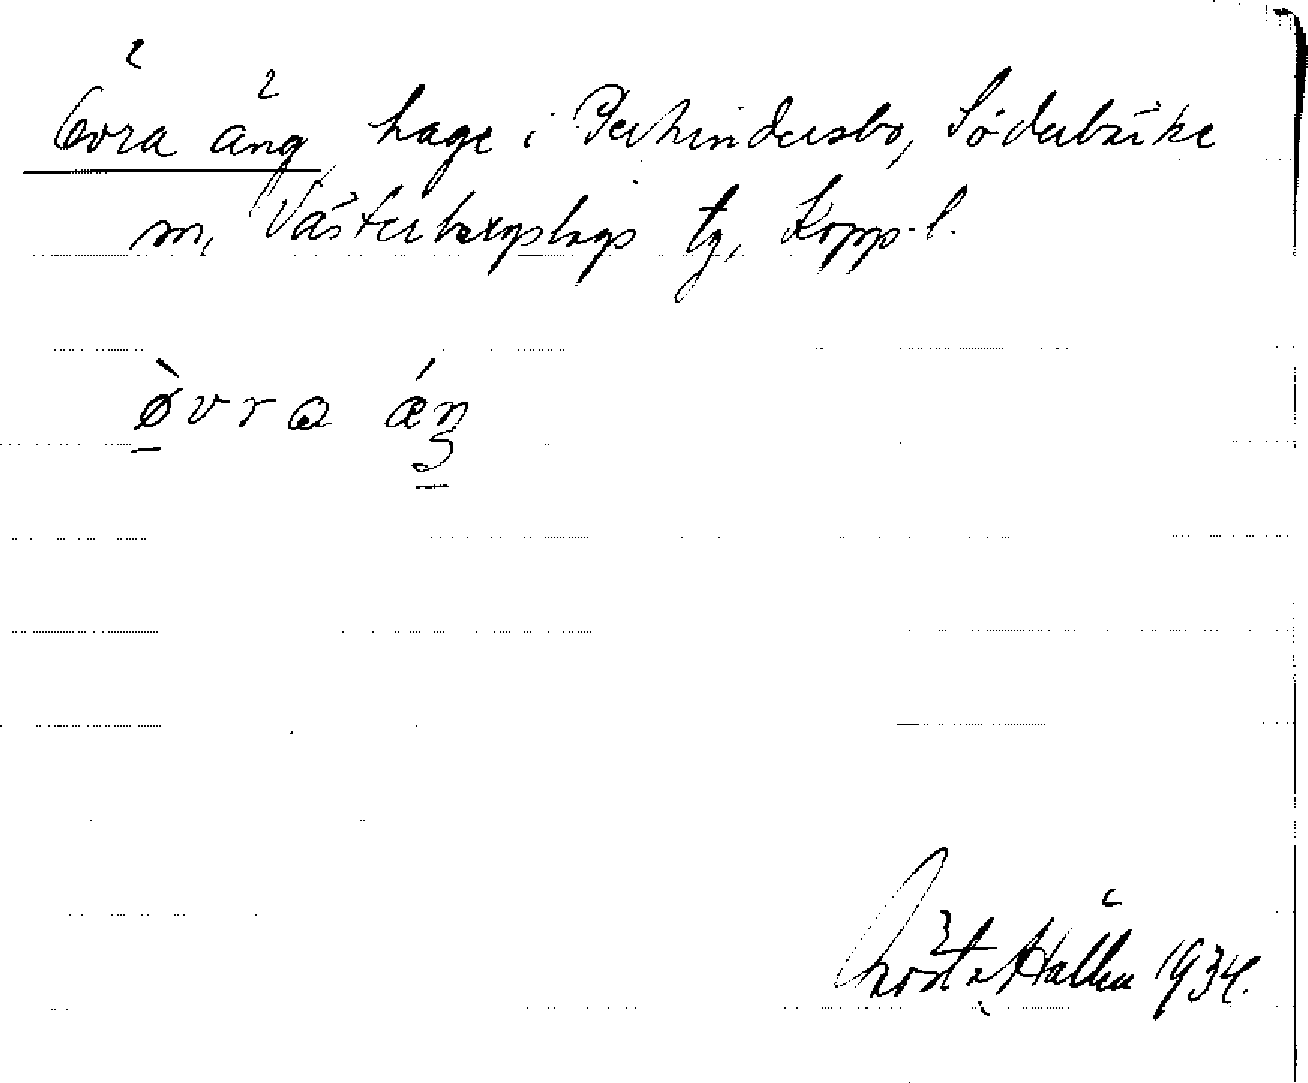 Övra äng, hage i Perhindersbo, Söderbärke
sn, Västerbergslags tg, Kopp. l.
ø̀vra ǽŋ
Gösta Hallén 1934.